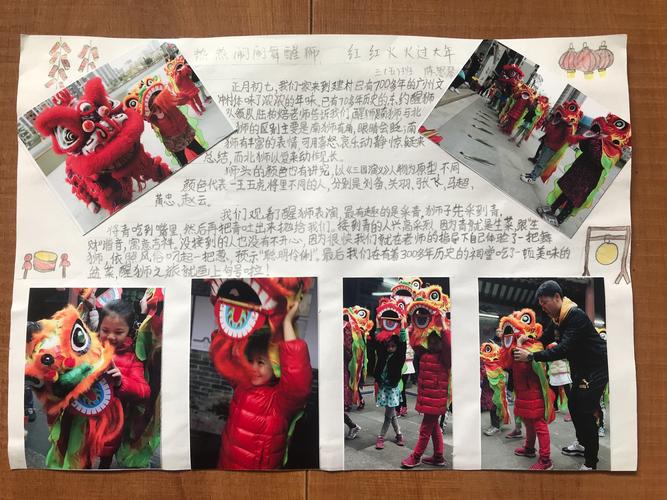 热热闹闹舞醒狮 红红火火过大年
三(5)班 陈
正月初七,我们一家来到建村已有700多年的广州文
体味了浓浓的年味,已有708年历史的东约醒狮
队领队胜柏焰老师告诉我们,醒狮属南狮与北
狮的区别主要是南狮有角,眼睛会眨,南
狮有丰富的表情,可用喜怒哀乐动静惊疑来
总结,而北狮以冒来动作见长。
狮头的颜色也有讲究,以《三国演义》人物为原型,不同
颜色代表一王五虎将里不同的人,分别是刘备、关羽、张飞、马超、
黄忠、赵云。
我们观看了醒狮表演,最有趣的是采青,狮子先采到青,
仔青吃到嘴里,然后再把青吐出来抛给我们。接到青的人兴高采烈,因为青就是生菜,跟"生
财"谐音,寓意吉祥。没接到的人也没有不开心,因为很快我们就在老师的指导下自己体验了一把舞
狮,依照风俗叼起一把葱,预示"聪明伶俐"。最后我们在有着300多年历史的祠堂吃了一顿美味的
盆菜,醒狮之旅就画上句号啦!